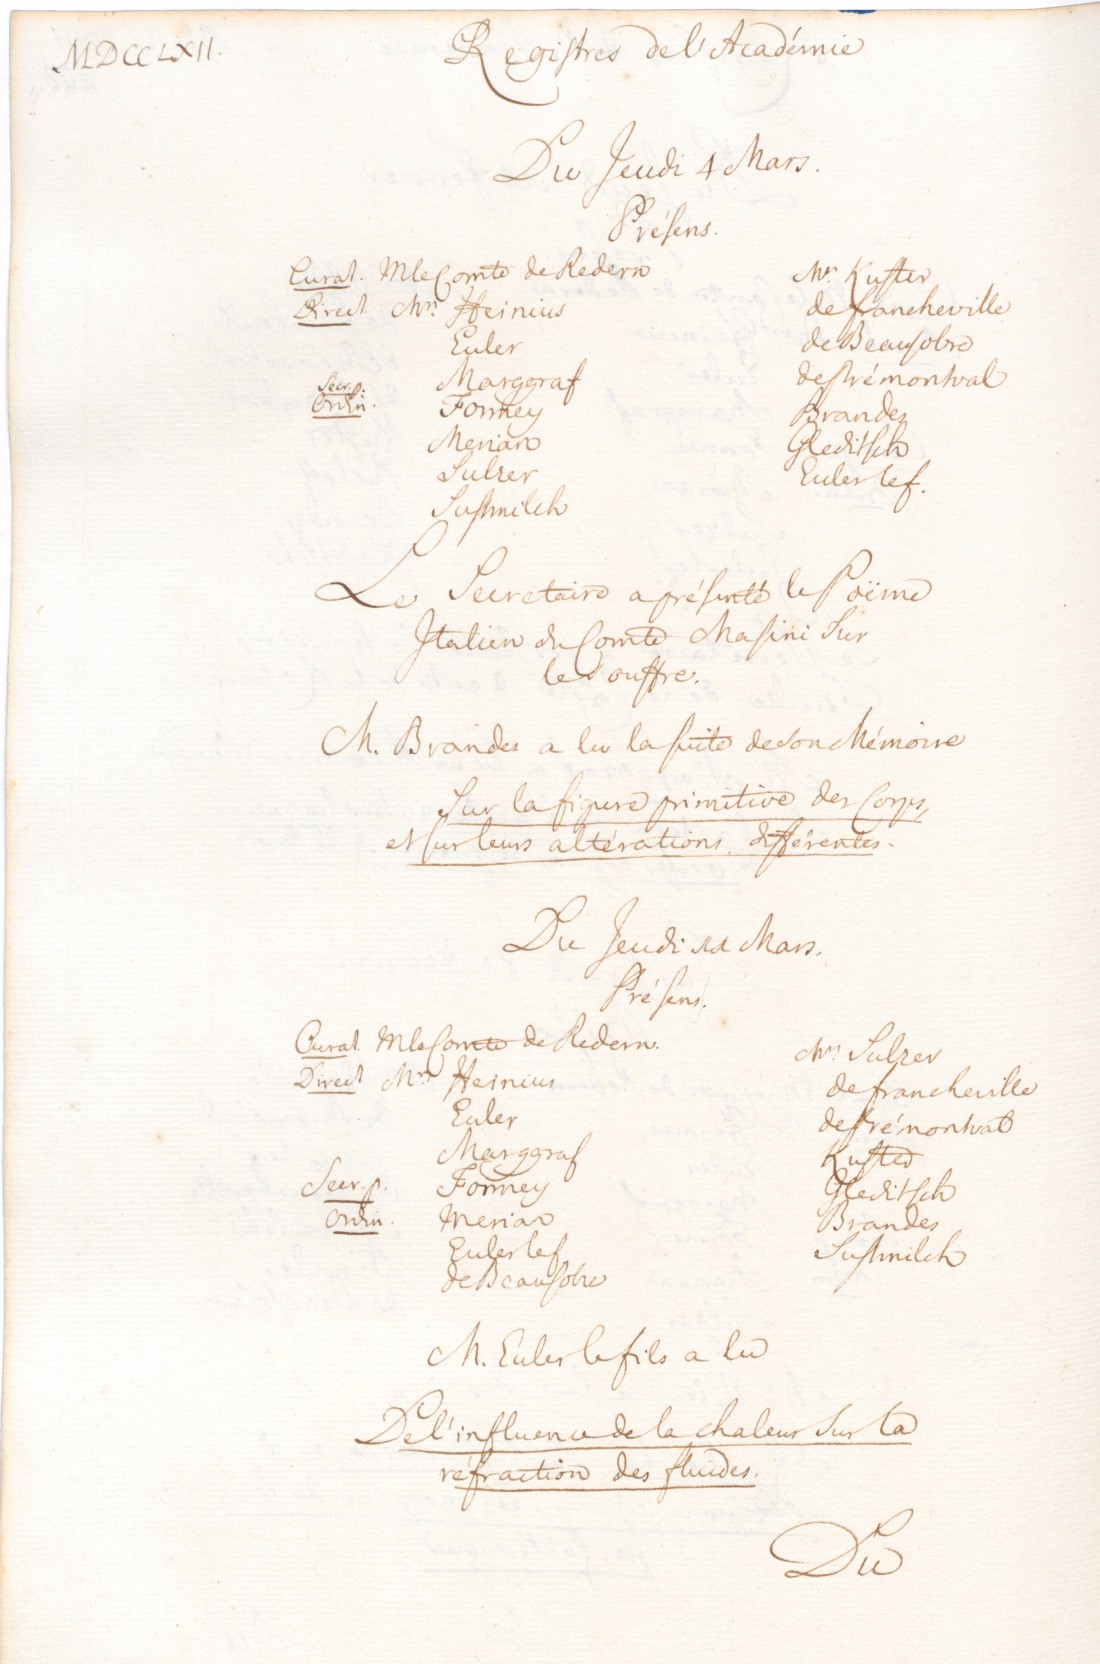 MDCCLXII.
Registres de l'Académie
Du Jeudi 4 Mars.
Présens.
Curat. M le Comte de Redern
Direct. Mrs Heinius
Euler
Marggraf
Secr. p.
Ordin. Formey
Merian
Sulzer
Susmilch
Mrs Kuster
de francheville
de Beausobre
de Prémontval
Brandes
Gleditsch
Euler le f.
Le Secretaire a présenté le Poëme
Italien du Comte Masini sur
le souffre.
M. Brandes a lu la suite de son Mémoire
sur la figure primitive des Corps,
et sur leurs altérations différentes.
Du Jeudi 11 Mars.
Présens.
Curat. M le Comte de Redern.
Direct Mrs Heinius
Euler
Marggraf
Secr. p. Formey
Ordin. Merian
Euler le f.
de Beausobre
Mrs Sulzer
de francheville
de Prémontval
Kuster
Gleditsch
Brandes
Susmilch
M. Euler le fils a lu
De l'influence de la chaleur sur la
réfraction des fluides.
Du